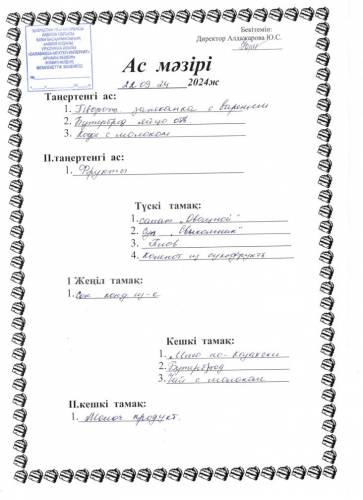 Бекітемін:
Директор Алдажарова Ю.С.
Ас мәзірі
22 09 24 2024ж
Таңертеңгі ас:
1. Творог запеканка с варением
2. Бутерброд яйцо
3. Кофе с молоком
II.таңертеңгі ас:
1. Фрукты
Түскі тамақ:
1. салат „Овощной"
2. Суп
3. Плов
4. Компот из сухофрукт
I Жеңіл тамақ:
1. Сок конд из-е
Кешкі тамақ:
1. Мясо по-казахски
2. Бутерброд
3. Чай с молоком
II.кешкі тамақ:
1. Молоч продукт.